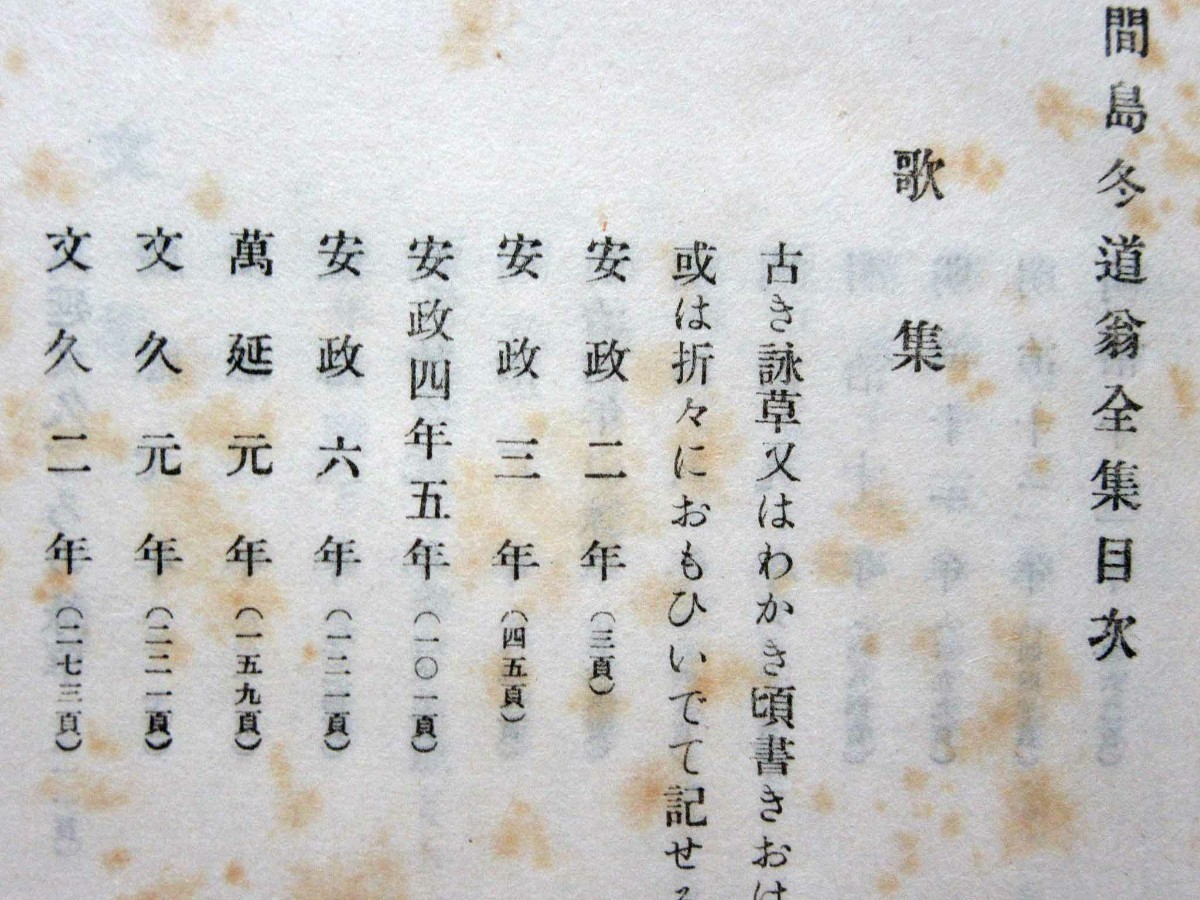 間島冬道翁全集目次
歌集
古き詠草又はわかき頃書きおけ
或は折々におもひいでて記せる
安政二年(三頁)
安政三年(四五頁)
安政四年五年(一〇一頁)
安政六年(一二一頁)
萬延元年(一五九頁)
文久元年(二二一頁)
文久二年(二七三頁)